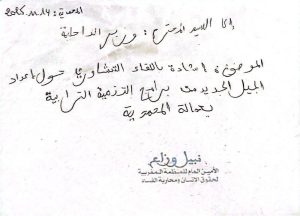 المحمدية: 2025.11.14
إلى السيد المحترم: وزير الداخلية
الموضوع: إشادة باللقاء التشاوري حول إعداد
الجيل الجديد من برامج التنمية الترابية
بعمالة المحمدية
نبيل وزاع
الأمين العام للمنظمة المغربية
لحقوق الإنسان ومحاربة الفساد